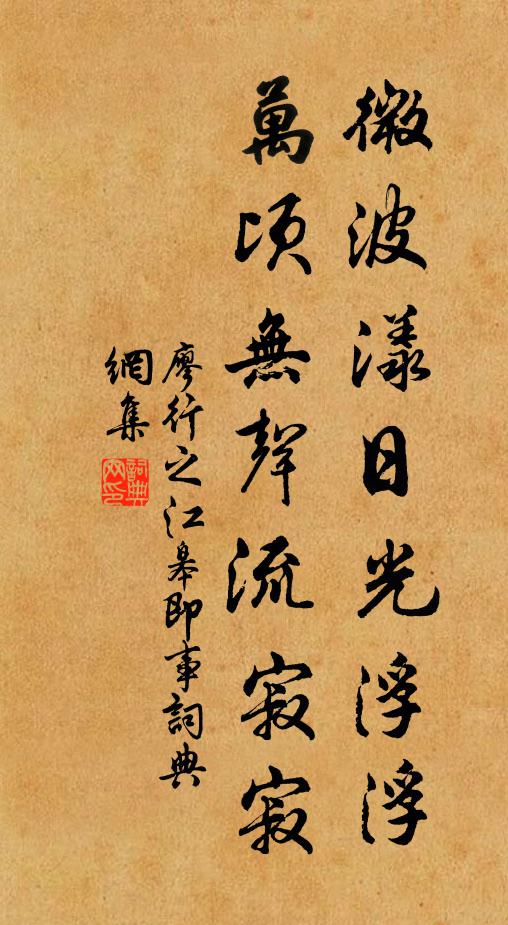 微波漾日光浮浮
萬頃無聲流寂寂
廖行之江皋即事詞典
網集
詞典網印